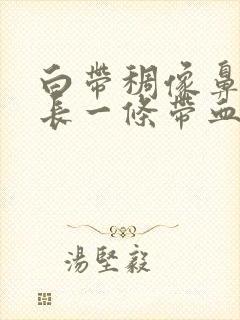 白帶稠像鼻
長一條帶血
湯堅毅